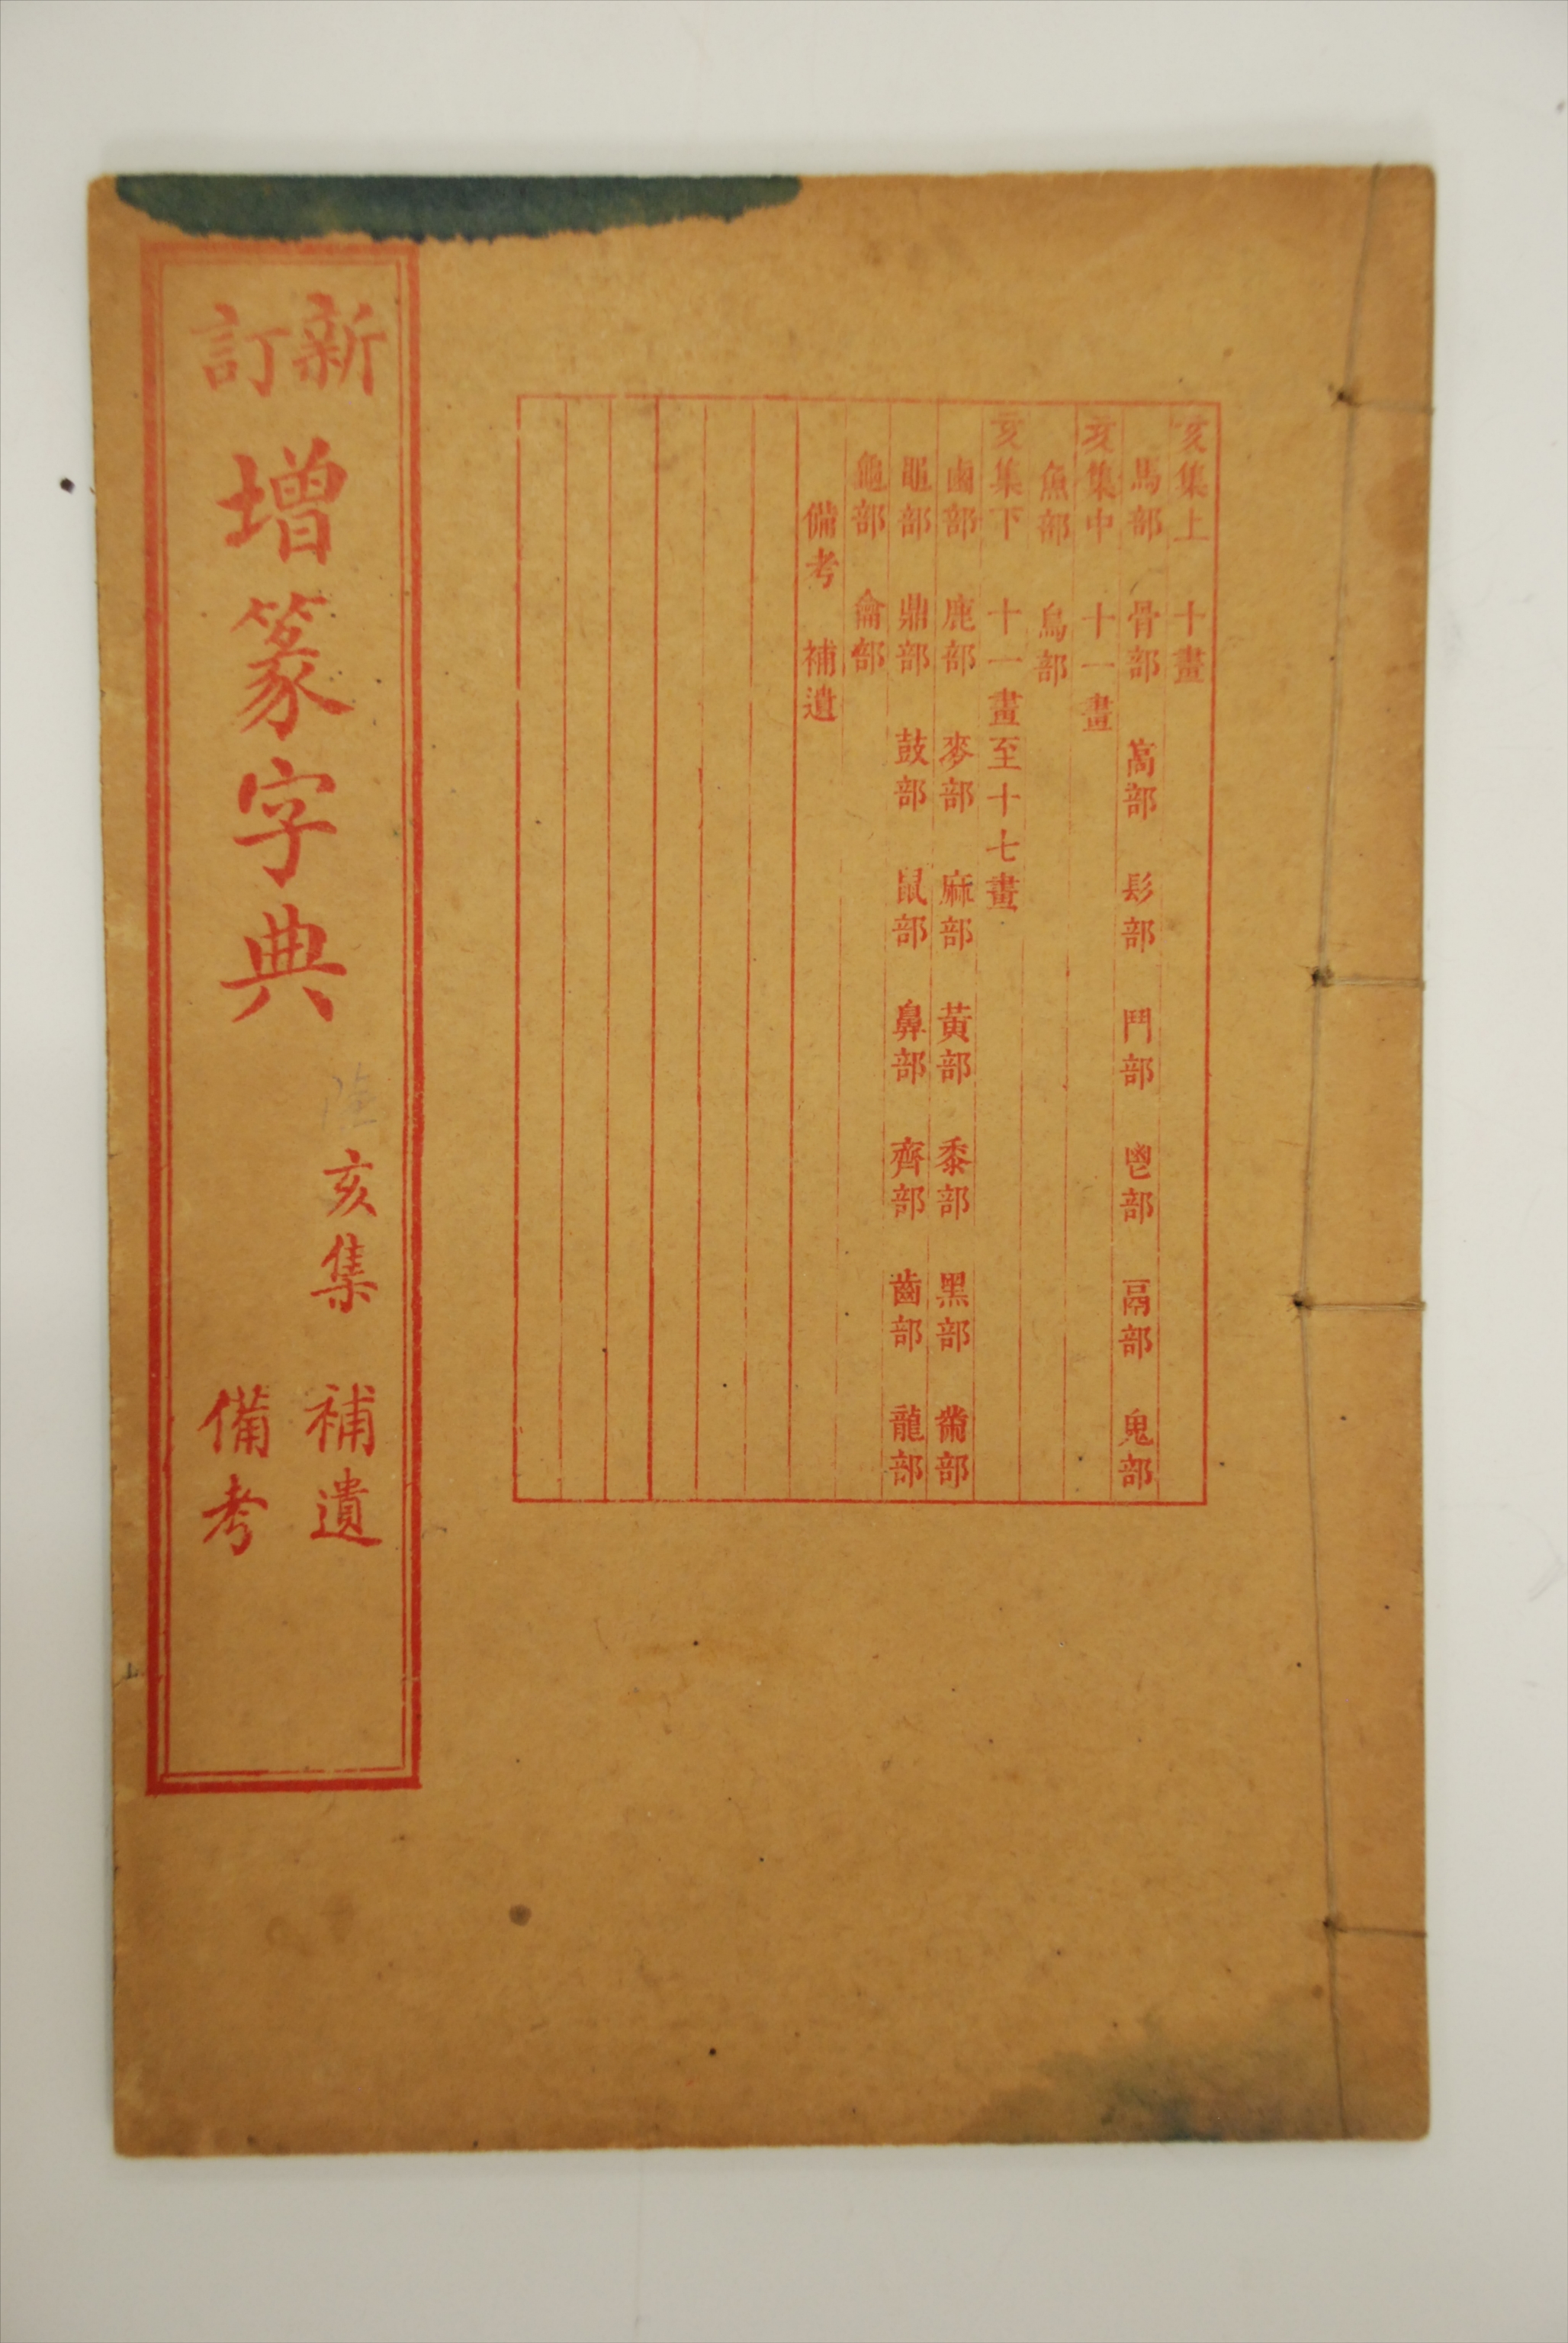 亥集上 十畫
馬部 骨部 高部 髟部 鬥部 鬯部 鬲部 鬼部
亥集中 十一畫
魚部 鳥部
亥集下 十一畫至十七畫
鹵部 鹿部 麥部 麻部 黃部 黍部 黑部 黹部
黽部 鼎部 鼓部 鼠部 鼻部 齊部 齒部 龍部
龜部 龠部
備考 補遺
新訂
增篆字典
亥集
補遺
備考